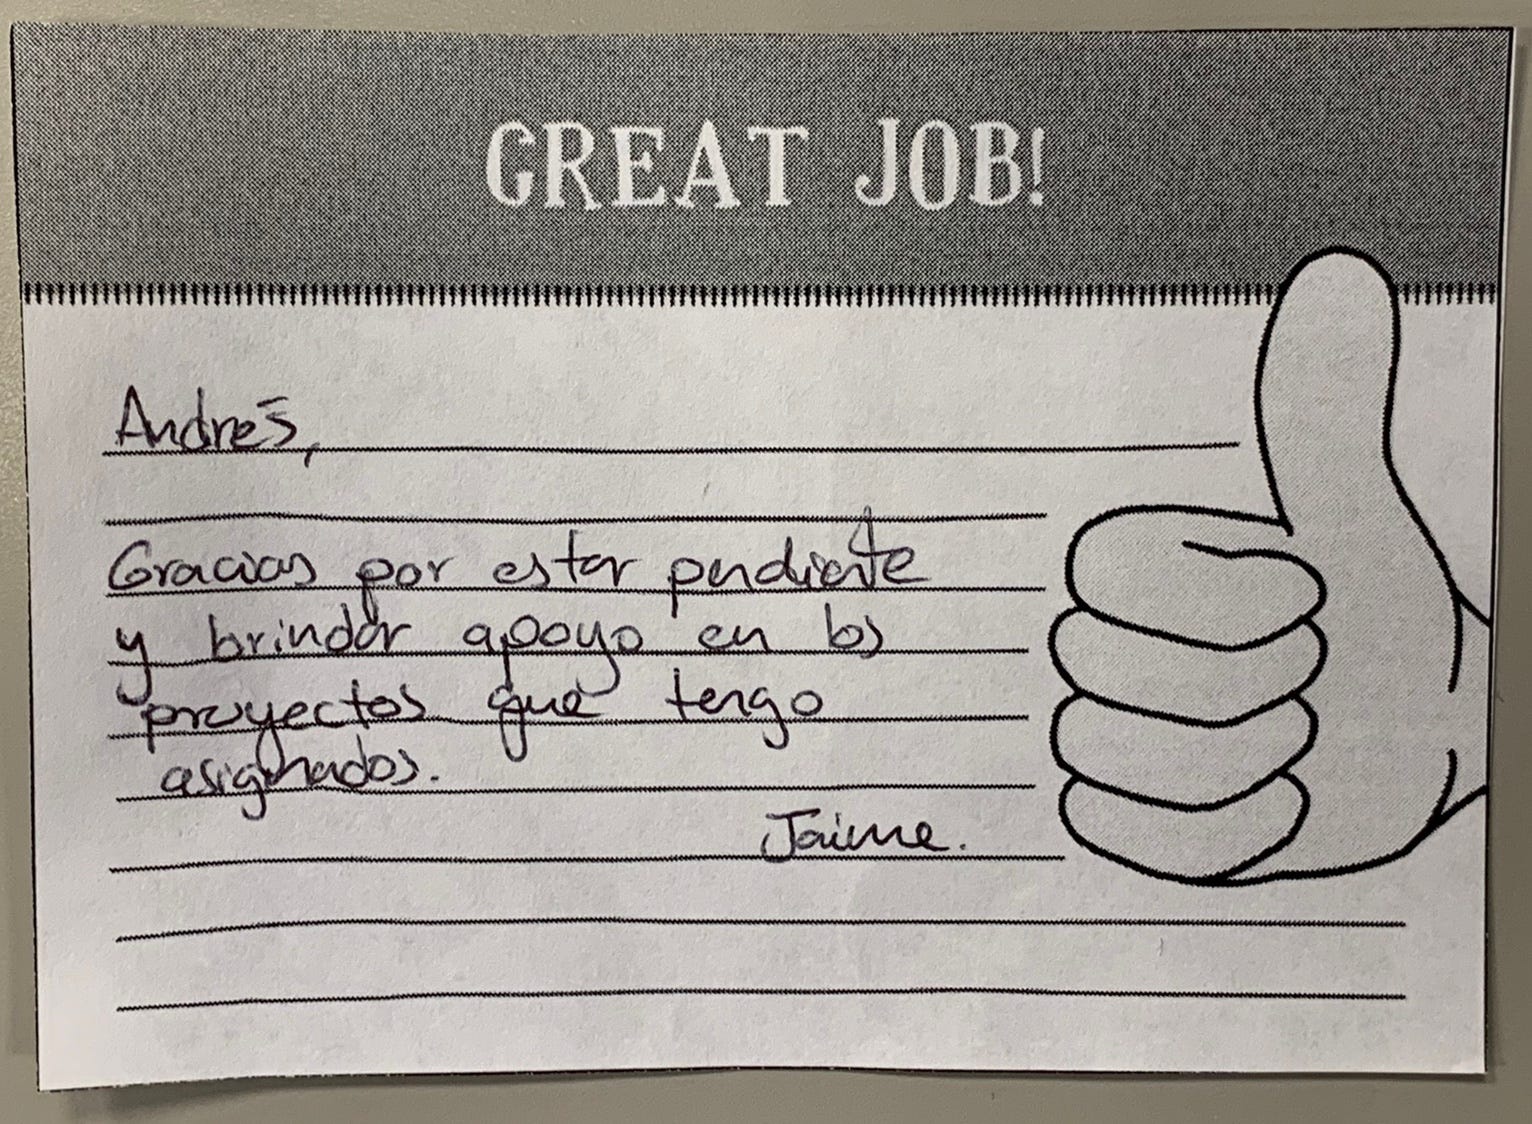 GREAT JOB!
Andrés,
Gracias por estar pendiente
y brindar apoyo en los
proyectos que tengo
asignados.
Jaime.